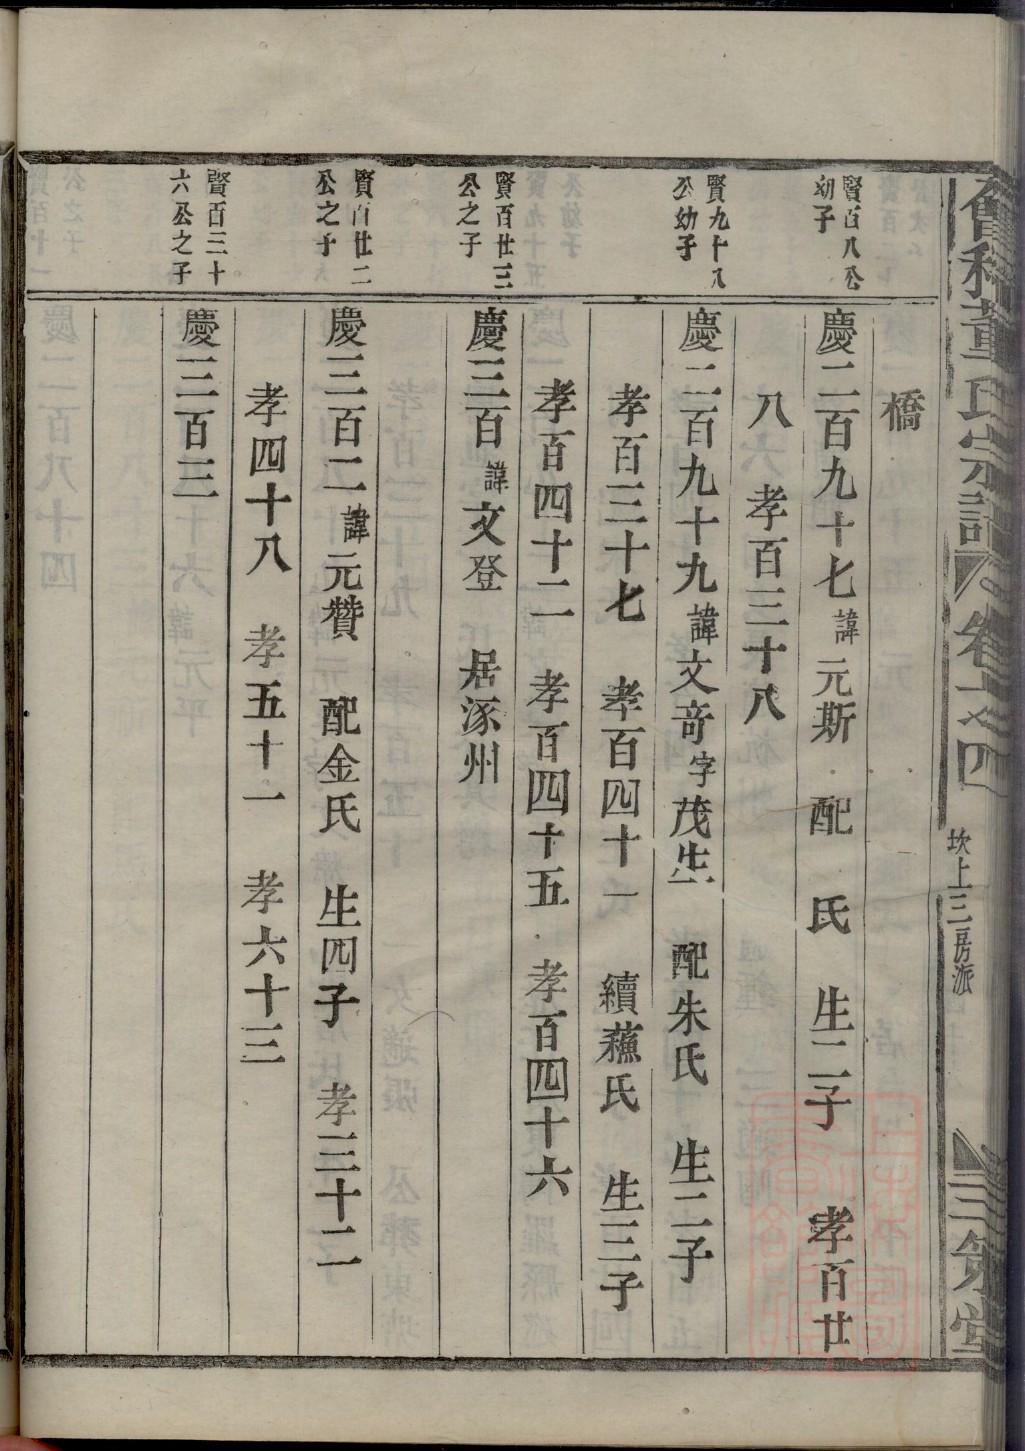 會稽董氏宗譜 卷十四 坎上三房派 三策堂
橋
賢百八公
幼子
慶二百九十七 諱元斯 配 氏 生二子 孝百廿
八 孝百三十八
賢九十八
公幼子
慶二百九十九 諱文竒 字茂生 配朱氏 生二子
孝百三十七 孝百四十一 續蘓氏 生三子
孝百四十二 孝百四十五 孝百四十六
賢百廿三
公之子
慶三百 諱文登 居涿州
賢百廿二
公之子
慶三百二 諱元贊 配金氏 生四子 孝三十二
孝四十八 孝五十一 孝六十三
賢百三十
六公之子
慶三百三